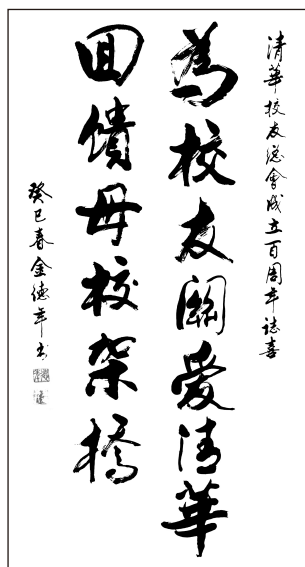 清華校友總會成立百周年誌喜
為校友關愛清華
回饋母校架橋
癸巳春金德年書